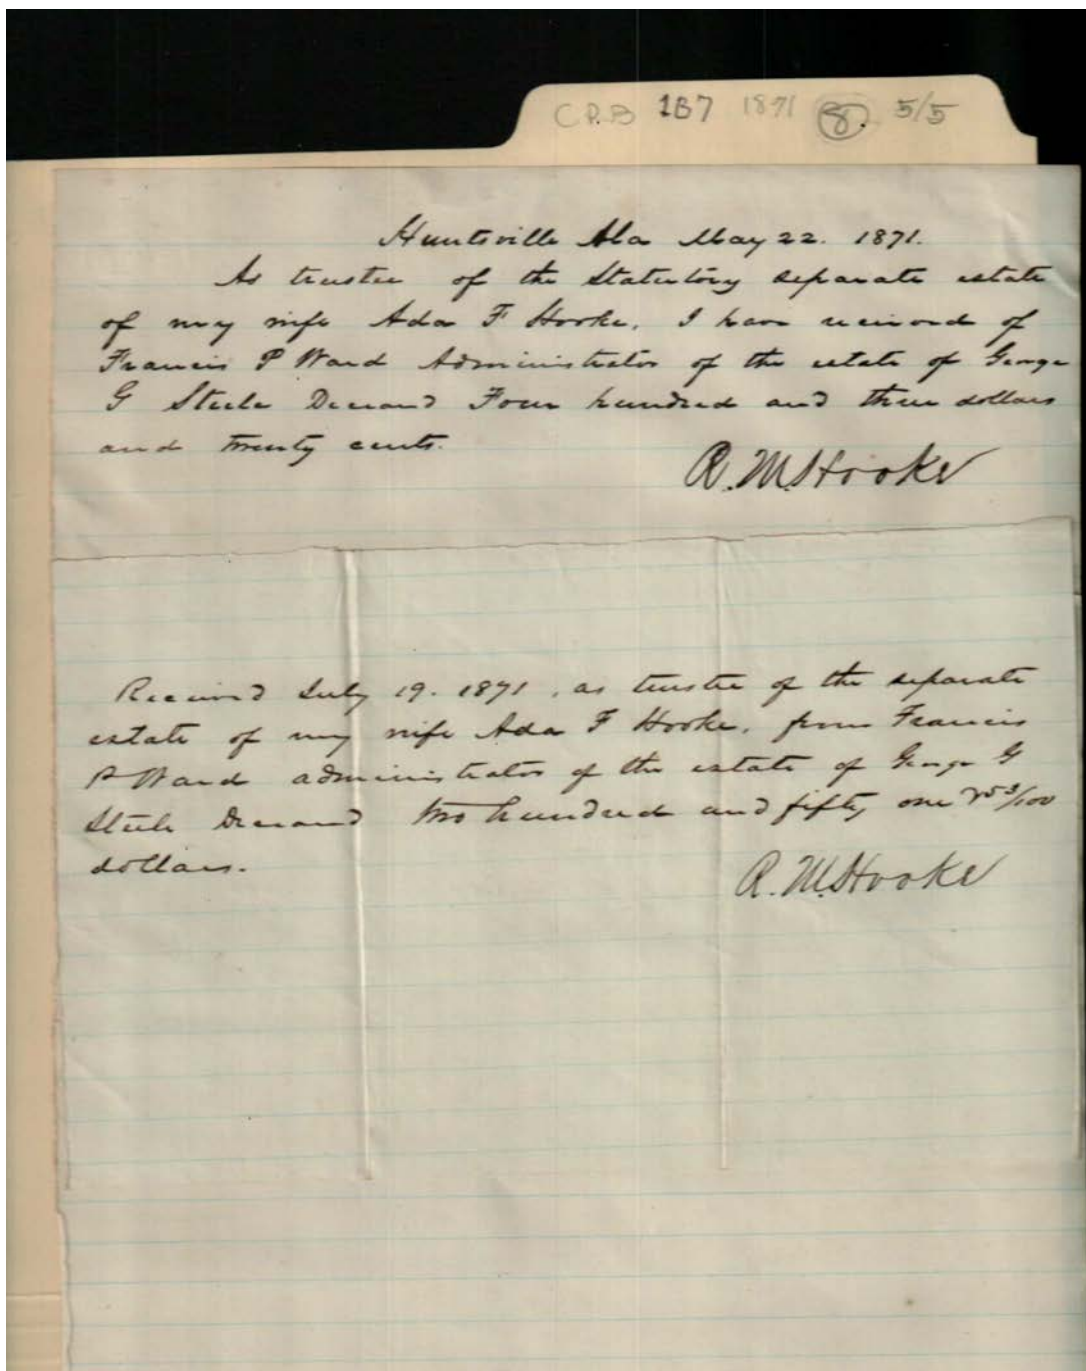 C.P.B 1B7 1871 8. 5/5
Huntsville Ala May 22. 1871.
As trustee of the Statutory separate estate
of my wife Ada F Hooke, I have received of
Francis P Ward Administrator of the estate of George
G Steele Deceased Four hundred and three dollars
and twenty cents.
R. M. Hooke
Received July 19. 1871, as trustee of the separate
estate of my wife Ada F Hooke, from Francis
P Ward administrator of the estate of George G
Steele Deceased two hundred and fifty one /100
dollars.
R. M. Hooke